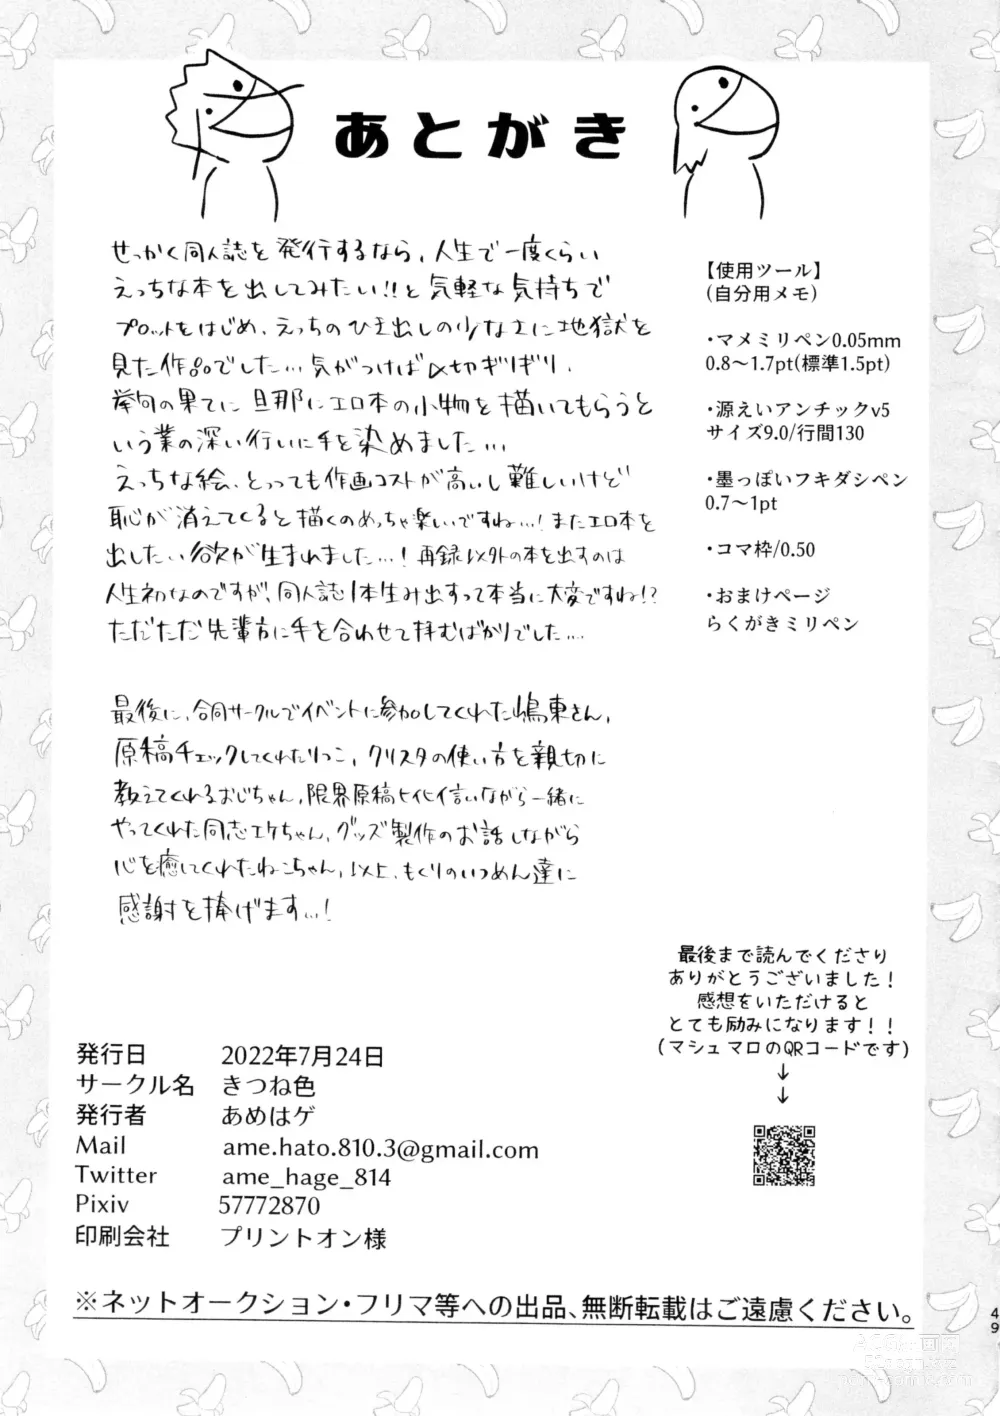 あとがき
せっかく同人誌を発行するなら、人生で一度くらい
えっちな本を出してみたい!!と気軽な気持ちで
プロットをはじめ、えっちのひき出しの少なさに地獄を
見た作品でした…気がつけば〆切ギリギリ、
挙句の果てに旦那にエロ本の小物を描いてもらうと
いう業の深い行いに手を染めました…
えっちな絵、とっても作画コストが高いし難しいけど
恥が消えてくると描くのめっちゃ楽しいですね…!またエロ本を
出したい欲が生まれました…!再録以外の本を出すのは
人生初なのですが、同人誌1本生み出すって本当に大変ですね!?
ただただ先輩方に手を合わせて拝むばかりでした…
最後に、合同サークルでイベントに参加してくれた嶋東さん、
原稿チェックしてくれたりつこ、クリスタの使い方を親切に
教えてくれるおじちゃん、限界原稿ヒイヒイ言いながら一緒に
やってくれた同志エケちゃん、グッズ製作のお話しながら
心を癒してくれたねこちゃん、以上、もぐりのいつめん達に
感謝を捧げます…!
【使用ツール】
(自分用メモ)
・マメミリペン0.05mm
0.8〜1.7pt(標準1.5pt)
・源えいアンチックv5
サイズ9.0/行間130
・墨っぽいフキダシペン
0.7〜1pt
・コマ枠/0.50
・おまけページ
らくがきミリペン
最後まで読んでくださり
ありがとうございました!
感想をいただけると
とても励みになります!!
(マシュマロのQRコードです)
↓
↓
発行日 2022年7月24日
サークル名 きつね色
発行者 あめはゲ
Mail ame.hato.810.3@gmail.com
Twitter ame_hage_814
Pixiv 57772870
印刷会社 プリントオン様
※ネットオークション・フリマ等への出品、無断転載はご遠慮ください。
49